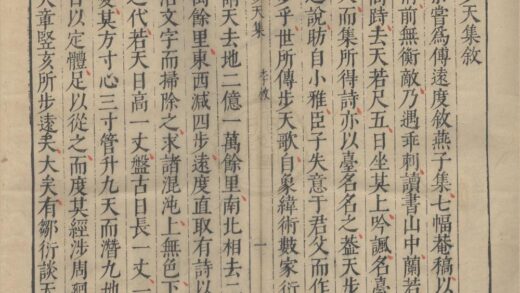 天集敘
嘗為傅遠度敘燕子集七幅菴稿以
前無衡敵乃遇乖刺讀書山中蘭若
跱去天若尺五日坐其上吟諷名臺
天而集所得詩亦以臺名名之葢天步
之說昉自小雅臣子失意于君父而作
多乎世所傳步天歌自象緯術數家衍
天集 李敘 一
天去地二億一萬餘里南北相去二
萬餘里東西減四步遠度直取有詩以
文字而掃除之求諸混沌上無色下
之代若天日高一丈盤古日長一丈一
其方寸心三寸管升九天而潛九地
以定體足以從之而度其經涉周廻
章豎亥所步遠矣大矣有鄒衍談天